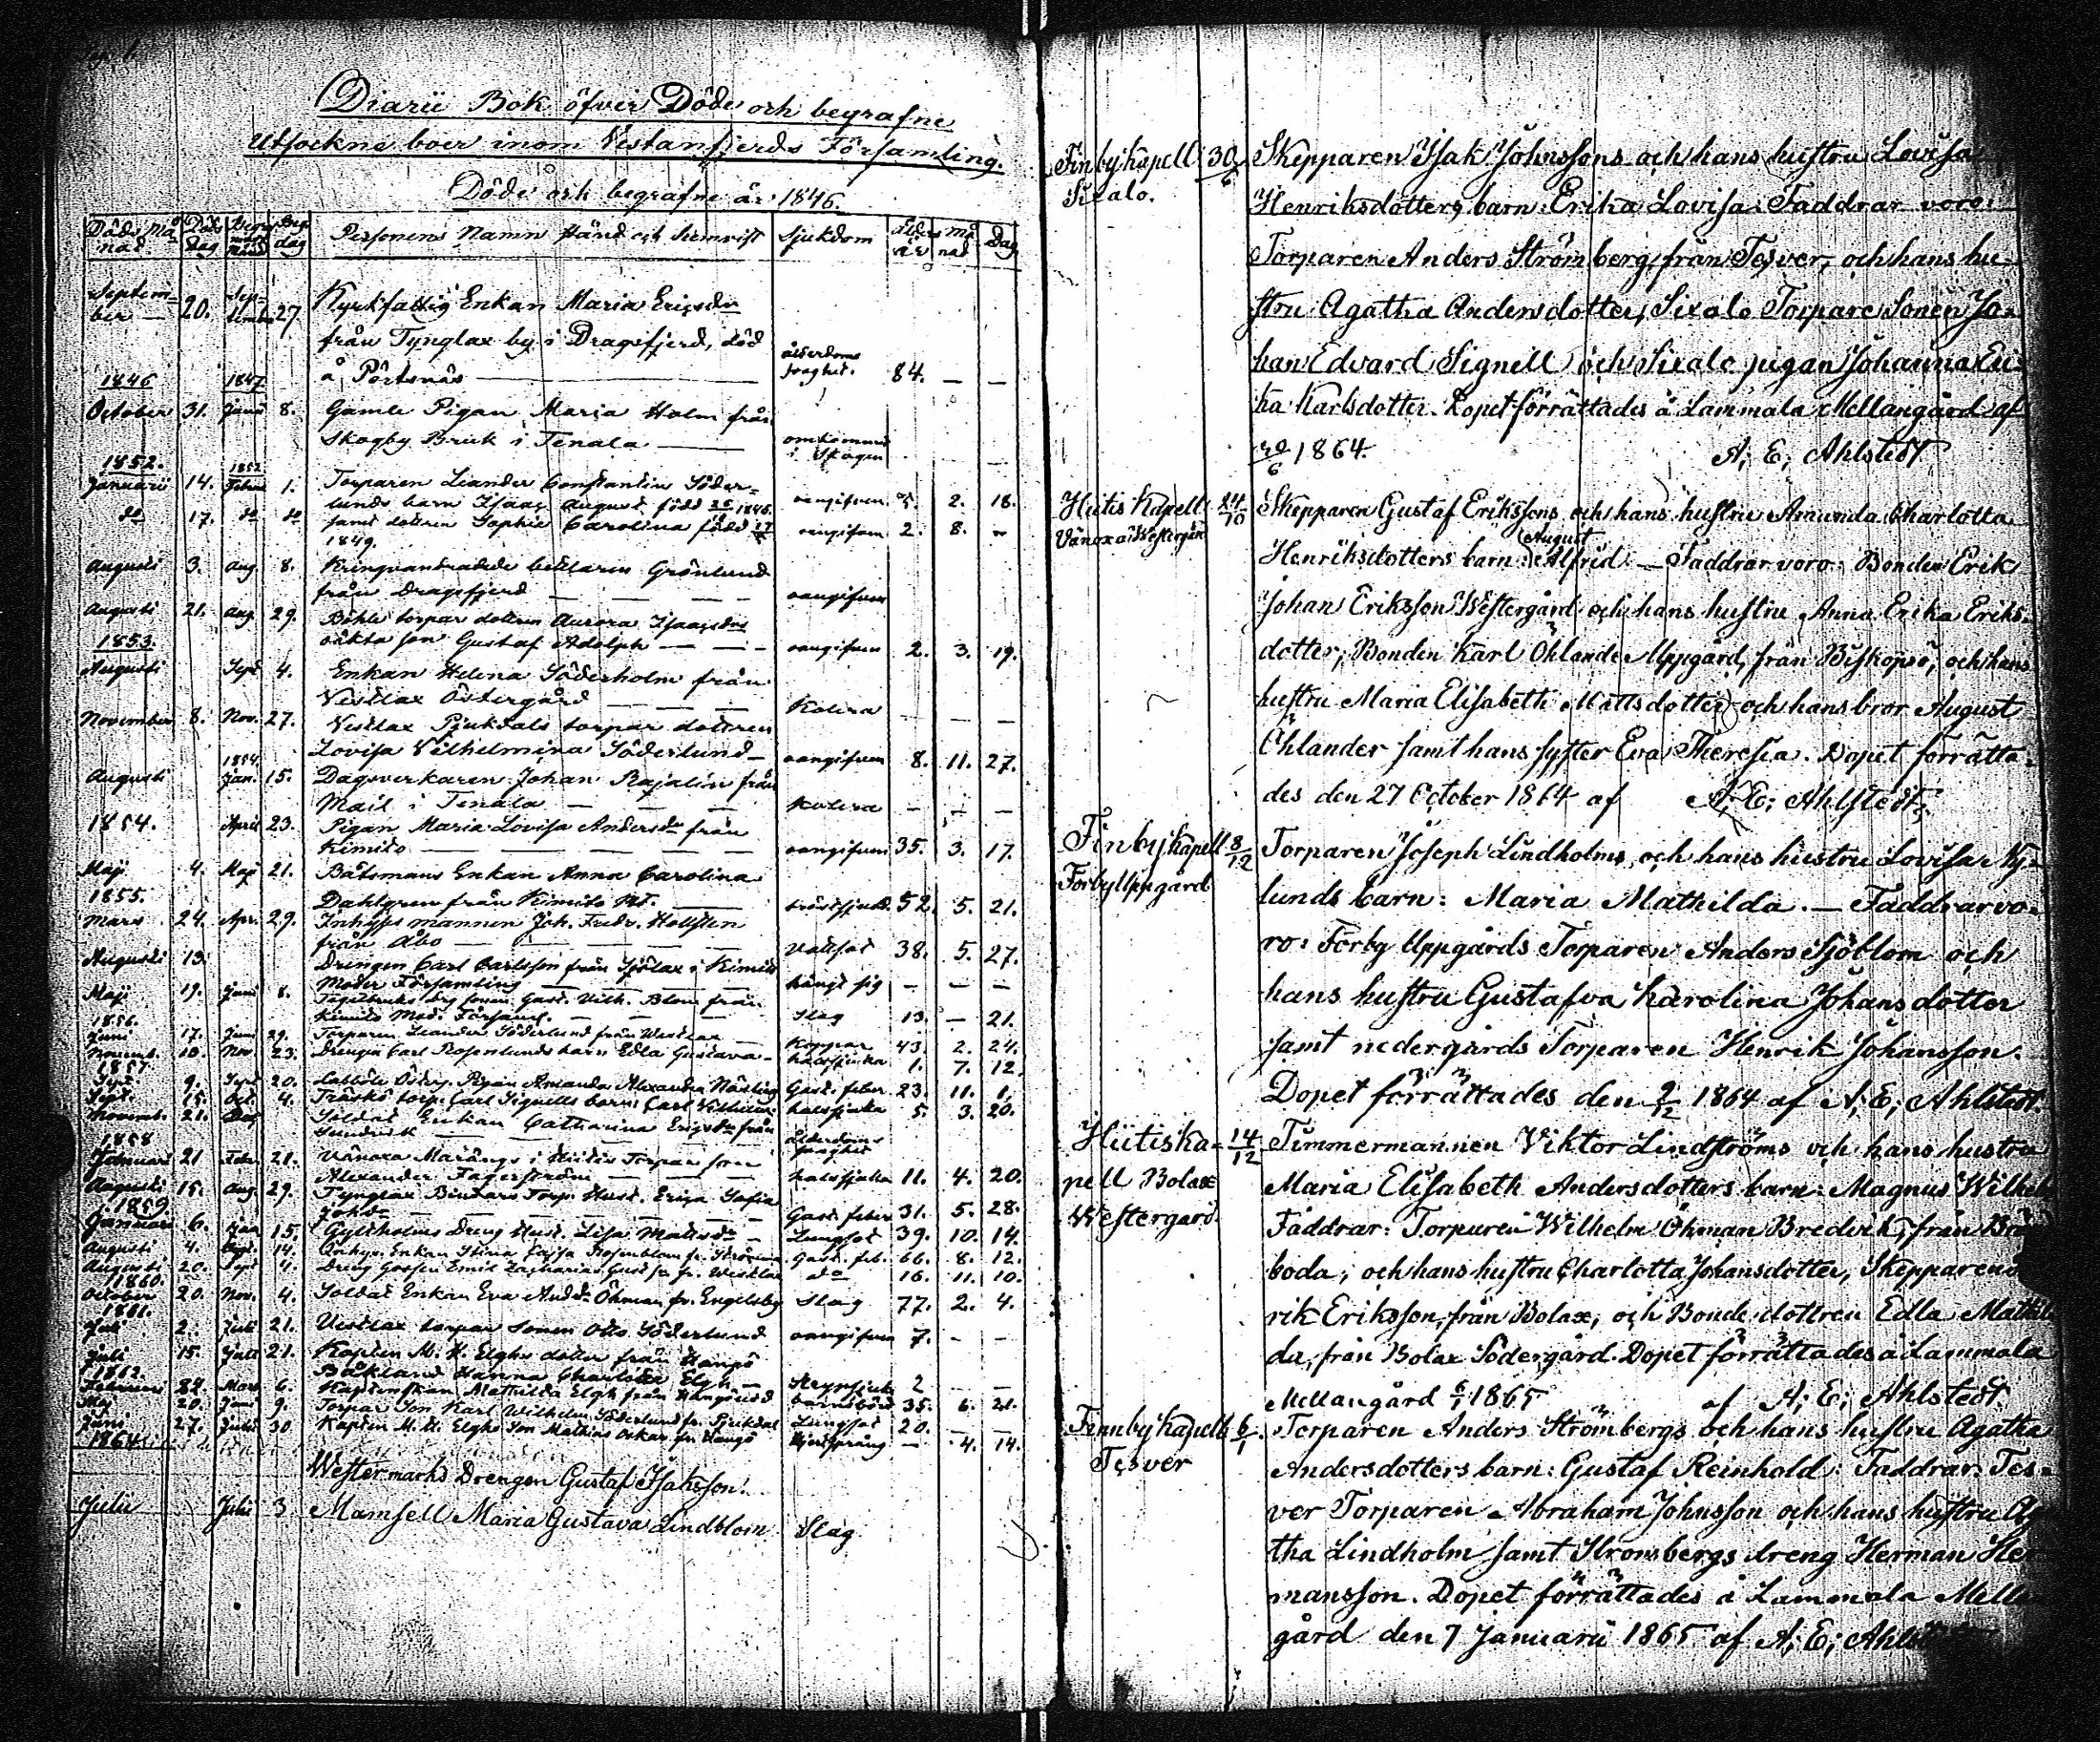 Diarii Bok öfver Döde och begrafne
Utsockne boer inom Vestanfjerds Församling.
Döde och begrafne år 1846.
Döds Månad. Döds Dag Begr. Månad Begr. dag Personens Namn Stånd och hemvist Sjukdom Ålder år Månad Dag
September — 20. September 27. Kyrkfattig Enkan Maria Ericsdr
från Tynglax by i Dragsfjerd, död
å Pörtsnäs — ålderdoms svaghet. 84. — —
1846 1847
October 31. Janu 8. Gamle Pigan Maria Holm från
Skogby Bruk i Tenala — omkommen i Skogen
1852. 1852
Januarii 14. Febru 1. Torparen Leander Constantin Söder-
lunds barn Isaac August född 1846. oangifven 5. 2. 18.
do 17. do do samt dottren Sophie Carolina född
1849. oangifven 2. 8. —
Augusti 3. Aug. 8. Kringvandrande betlaren Grönlund
från Dragsfjerd — — — oangifven
Augusti 21. Aug 29. Böhle torpar dottren Aurora Isaacsdrs
oäkta son Gustaf Adolph — — oangifven 2. 3. 19.
1853.
Augusti Sept 4. Enkan Helena Söderholm från
Vestlax Östergård — — — Kolera — — —
November 8. Nov. 27. Vestlax Pjukdals torpar dottren
Lovisa Vilhelmina Söderlund — oangifven 8. 11. 27.
1854.
Augusti Jan. 15. Dagsverkaren Johan Rajalin från
Mail i Tenala — — — Kolera — — —
1854. April 23. Pigan Maria Lovisa Andersdr från
Kimito — — — — oangifven 35. 3. 17.
Maji 4. Maji 21. Båtsmans Enkan Anna Carolina
1855. Dahlgren från Kimito — bröstsjukd. 52. 5. 21.
Mars 24. Apr. 29. Inhyses mannen Joh. Fredr. Hollsten
från Åbo — — — Vattsot 38. 5. 27.
Augusti 13. Drengen Carl Carlsson från Sjölax i Kimito
Moder Församling — — hängt sig — — —
Maji 19. Juni 8. Tegelbruks drg sonen Gust. Vilh. Blom från
Kimito Mod. Församl. — — — Slag 13. — 21.
1856.
Juni 17. Juni 29. Torparen Leander Söderlund från Westlax — Koppor 43. 2. 24.
Novemb. 10. Nov 23. Drengen Carl Rosenlunds barn Edla Gustava — halssjuka 1. 7. 12.
1857.
Sept 9. Sept 20. Labböle Österg. Pigan Amanda Alexandra Nästling Gast. feber 23. 11. 1.
Sept. 15. Oct. 4. Träskö torp. Carl Signells barn: Carl Vilhelm halssjuka 5. 3. 20.
Novemb. 21. Soldat Enkan Catharina Ericsdr från
Sundvik — — — ålderdoms svaghet
1858
Februari 21 Febr. 21. Vänoxa Marängs i Hitis Torpar son
Alexander Fagerström — — — halssjuka 11. 4. 20.
Augusti 15. Aug. 29. Tynglax Bindars Torp. Hust. Erica Sofia
1859. — — — Gast. feber 31. 5. 28.
Januari 6. Jan 15. Gyltholms Dreng Hust. Lisa Matsdr — Lungsot 39. 10. 14.
Augusti 4. Sept. 14. Enkan Stina Cajsa Rosenblom fr. Strömma Gast. feb. 66. 8. 12.
Augusti 20. Sept 4. Dreng Gossen Emil Zacharias Gust. sn fr. Westlax do 16. 11. 10.
1860.
October 20. Nov. 4. Soldat Enkan Eva Andrdr Öhman fr. Engelsby Slag 77. 2. 4.
1861.
Juli 2. Juli 21. Vestlax torpar sonen Otto Söderlund oangifven 7. — —
Juli 15. Juli 21. Kapten M. H. Elghs dotter från Hangö
1862. Båkland Hanna Charlotta Elgh — 2 — —
Februari 24. Mars 6. Kaptenskan Mathilda Elgh från Hangöudd barnsbörd 35. 6. 21.
Maj 20. Juni 9. Torpar Son Karl Wilhelm Söderlund fr. Pjukdal Lungsot 20. — —
Juni 27. Juli 30 Kapten M. H. Elghs Son Mathias Oskar fr. Hangö — 4. 14.
1864
Westermarks Drengen Gustaf Isaksson.
Julii Julii 3 Mamsell Maria Gustava Lindblom Slag
Finby Kapell 30/6 Skepparen Isak Johnssons och hans hustru Lovisa
Sixalo. Henriksdotters barn: Erika Lovisa: Faddrar voro:
Torparen Anders Strömberg, från Tesver, och hans hu-
stru Agatha Andersdotter, Sixalo Torpare Sonen Jo-
han Edvard Signell och Sixalo pigan Johanna Eri-
ka Karlsdotter. Dopet förrättades å Lammala Mellangård af
30/6 1864. A; E; Ahlstedt
Hiitis Kapell 24/10 Skepparen Gustaf Erikssons och hans hustru Amanda Charlotta
Vänoxa Westergård Henriksdotters barn: August Alfrid: — Faddrar voro: Bonden Erik
Johan Eriksson Westergård och hans hustru Anna Erika Eriks-
dotter; Bonden Karl Öhlander Uppgård, från Biskopsö, och hans
hustru Maria Elisabeth Mattsdotter och hans bror August
Öhlander samt hans syster Eva Theresia. Dopet förrätta-
des den 27 October 1864 af A; E; Ahlstedt;
Finby Kapell 8/12 Torparen Joseph Lindholms, och hans hustru Lovisa Ny-
Förby Uppgård lunds barn: Maria Mathilda. — Faddrar vo-
ro: Förby Uppgårds Torparen Anders Sjöblom och
hans hustru Gustafva Karolina Johansdotter
samt nedergårds Torparen Henrik Johansson.
Dopet förrättades den 9/12 1864 af A; E; Ahlstedt.
Hiitis ka- 14/12 Timmermannen Viktor Lindströms och hans hustru
pell Bolax Maria Elisabeth Andersdotters barn: Magnus Wilhelm
Westergård. Faddrar: Torparen Wilhelm Öhman Bredvik, från
boda, och hans hustru Charlotta Johansdotter, Skepparen
rik Eriksson, från Bolax, och Bonde dottren Edla Mathil
da, från Bolax Södergård. Dopet förrättades å Lammala
Mellangård 6/1 1865 af A; E; Ahlstedt.
Finnby Kapell 6/1. Torparen Anders Strömbergs och hans hustru Agatha
Tesver Andersdotters barn: Gustaf Reinhold: Faddrar: Tes-
ver Torparen Abraham Johnsson och hans hustru Aga
tha Lindholm samt Strömbergs dreng Herman Her
mansson. Dopet förrättades å Lammala Mellan
gård den 7 Januarii 1865 af A; E; Ahlstedt